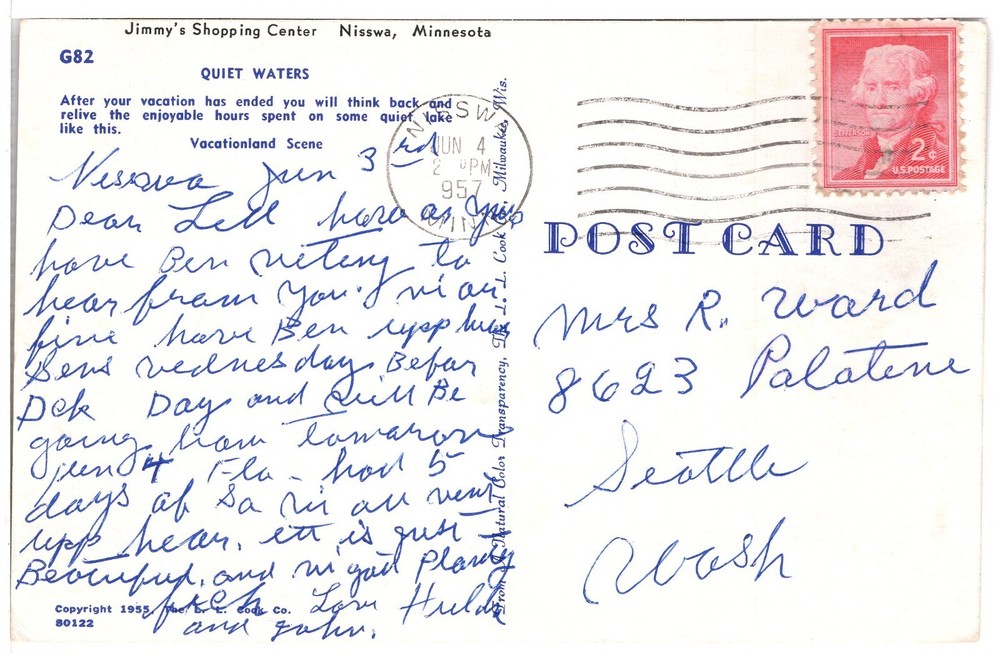 Jimmy's Shopping Center Nisswa, Minnesota
G82
QUIET WATERS
After your vacation has ended you will think back and
relive the enjoyable hours spent on some quiet lake
like this.
Vacationland Scene
NISSWA
JUN 4
2 PM
1957
MINN
JEFFERSON
2¢
U.S. POSTAGE
POST CARD
Nisswa Jun 3rd
Dear
have Ben to
hear from you.
fine have Ben upp
Sens vednesday Befor
Dek Day and Will Be
going hom tomarow
jun 4 Fla. had 5
days of
upp hear. ett is just
Beautiful. and vi got Planty
fich Love Hulda
and John.
Mrs R. Ward
8623 Palatene
Seattle
Wash
From A Natural Color Transparency, The L. L. Cook Co., Milwaukee, Wis.
Copyright 1955, The L. L. Cook Co.
80122